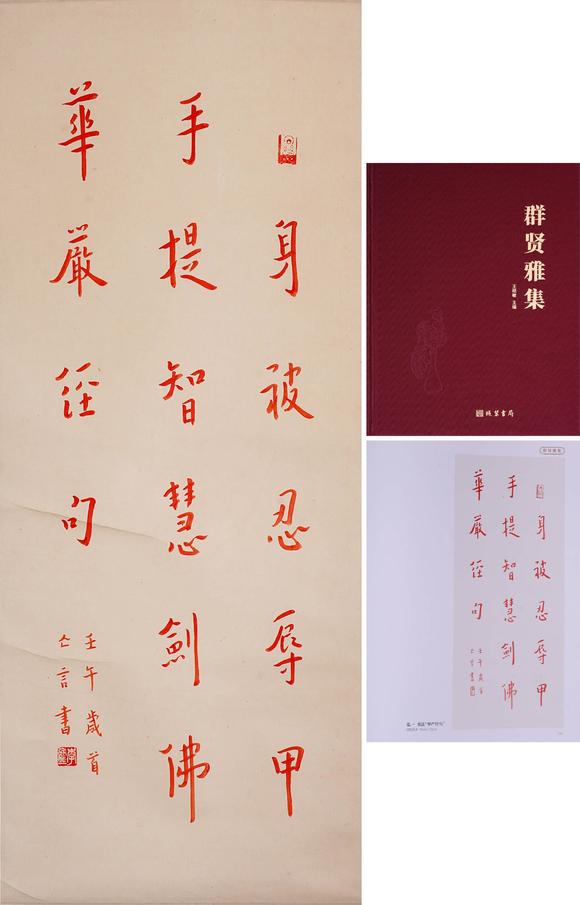 身被忍辱甲
手提智慧劍佛
華嚴經句
壬午歲首
亡言書
群贤雅集
主编
线装书局
身被忍辱甲
手提智慧劍佛
華嚴經句
壬午歲首
亡言書
弘一 书法“华严经句”